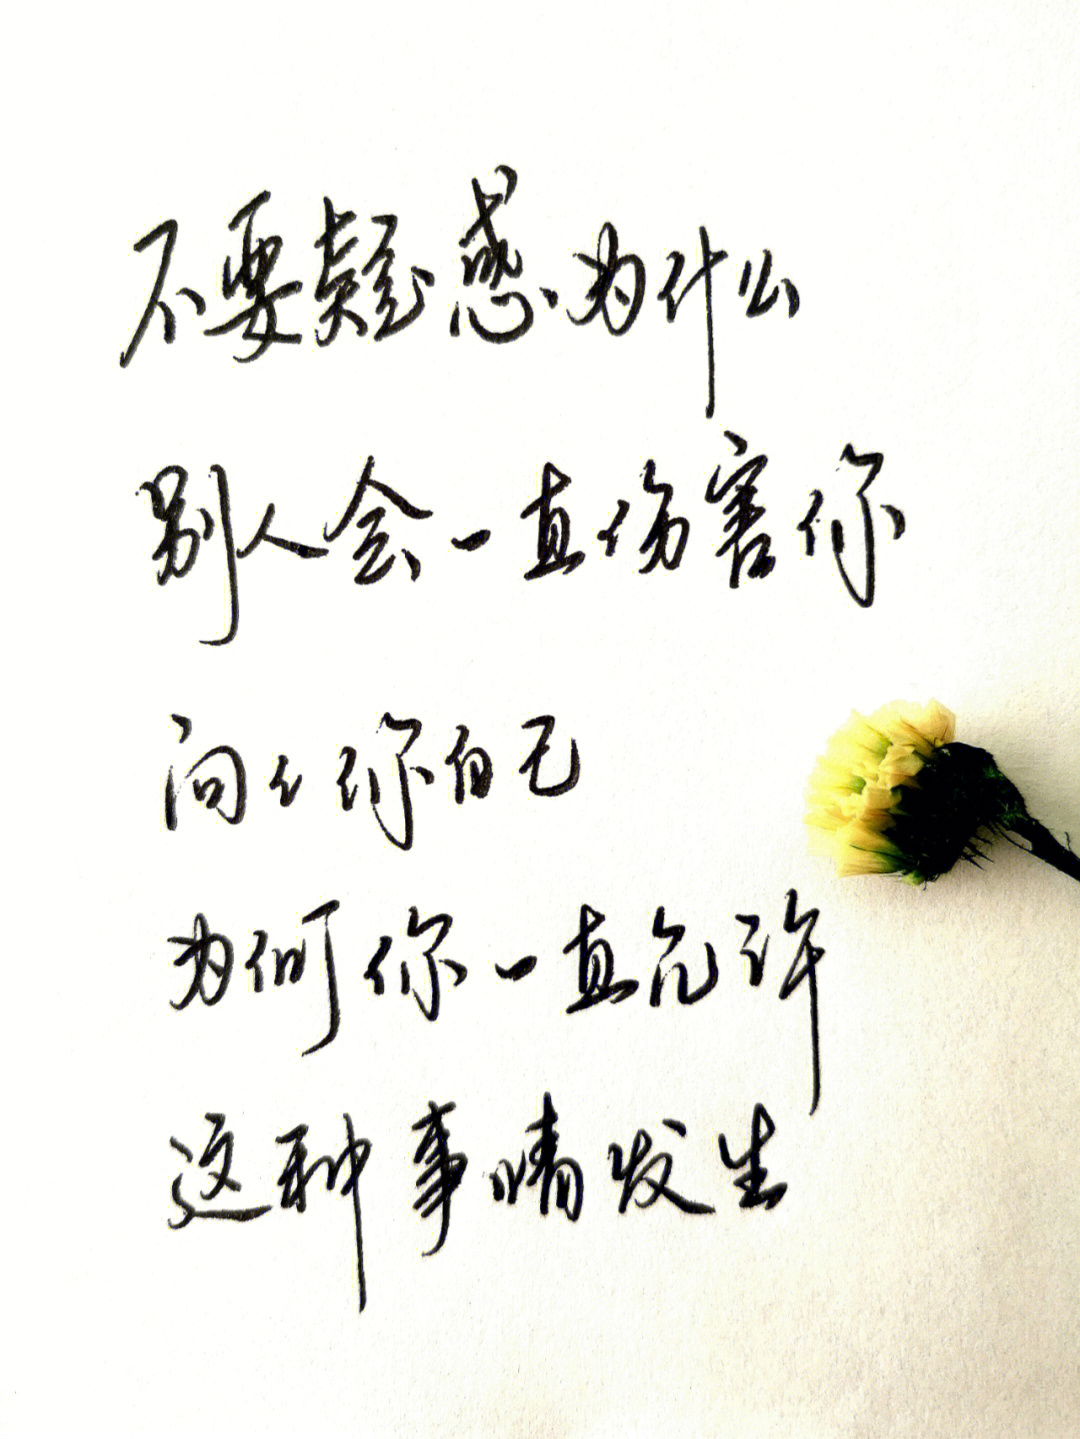 不要疑惑为什么
别人会一直伤害你
问问你自己
为何你一直允许
这种事情发生